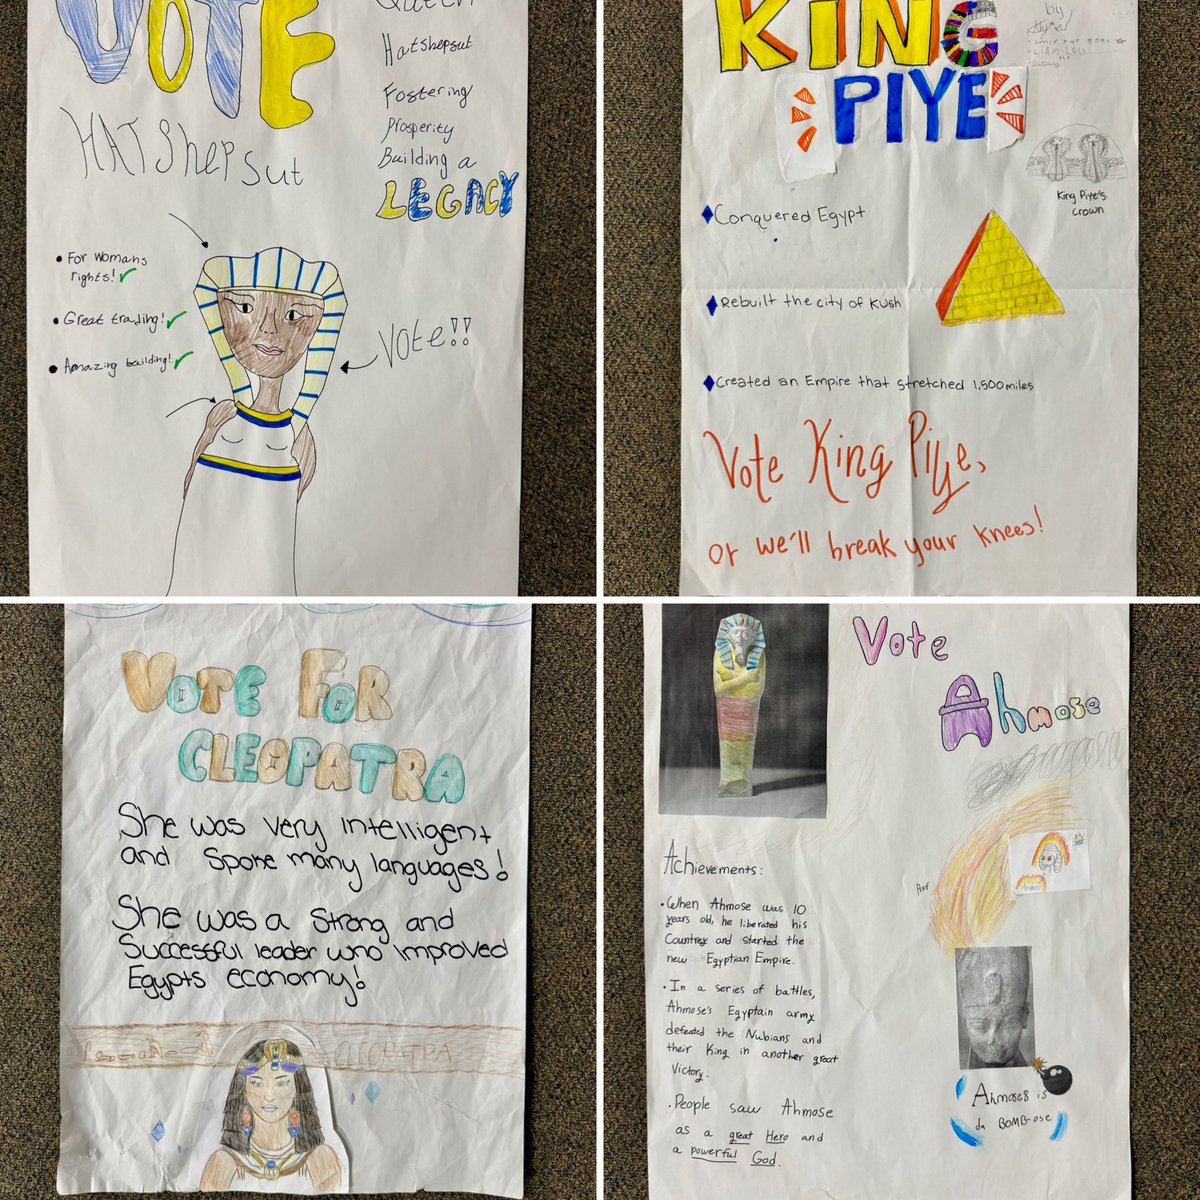 VOTE
HATShepsut
Queen
Hatshepsut
Fostering
Prosperity
Building a
LEGACY
• For womans
rights! ✓
• Great trading! ✓
• Amazing building! ✓
VOTE!!
KING
PIYE
by
King Piye's
crown
Conquered Egypt
Rebuilt the city of Kush
Created an Empire that stretched 1,500 miles
Vote King Piye,
or we'll break your knees!
VOTE FOR
CLEOPATRA
She was very intelligent
and spoke many languages!
She was a strong and
Successful leader who improved
Egypts economy!
CLEOPATRA
Vote
Ahmose
Poof
Ahmose
Achievements:
• When Ahmose was 10
years old, he liberated his
Country and started the
new Egyptian Empire.
• In a series of battles,
Ahmose's Egyptain army
defeated the Nubians and
their King in another great
Victory.
• People saw Ahmose
as a great Hero and
a powerful God.
Ahmoses is
da BOMB-ose